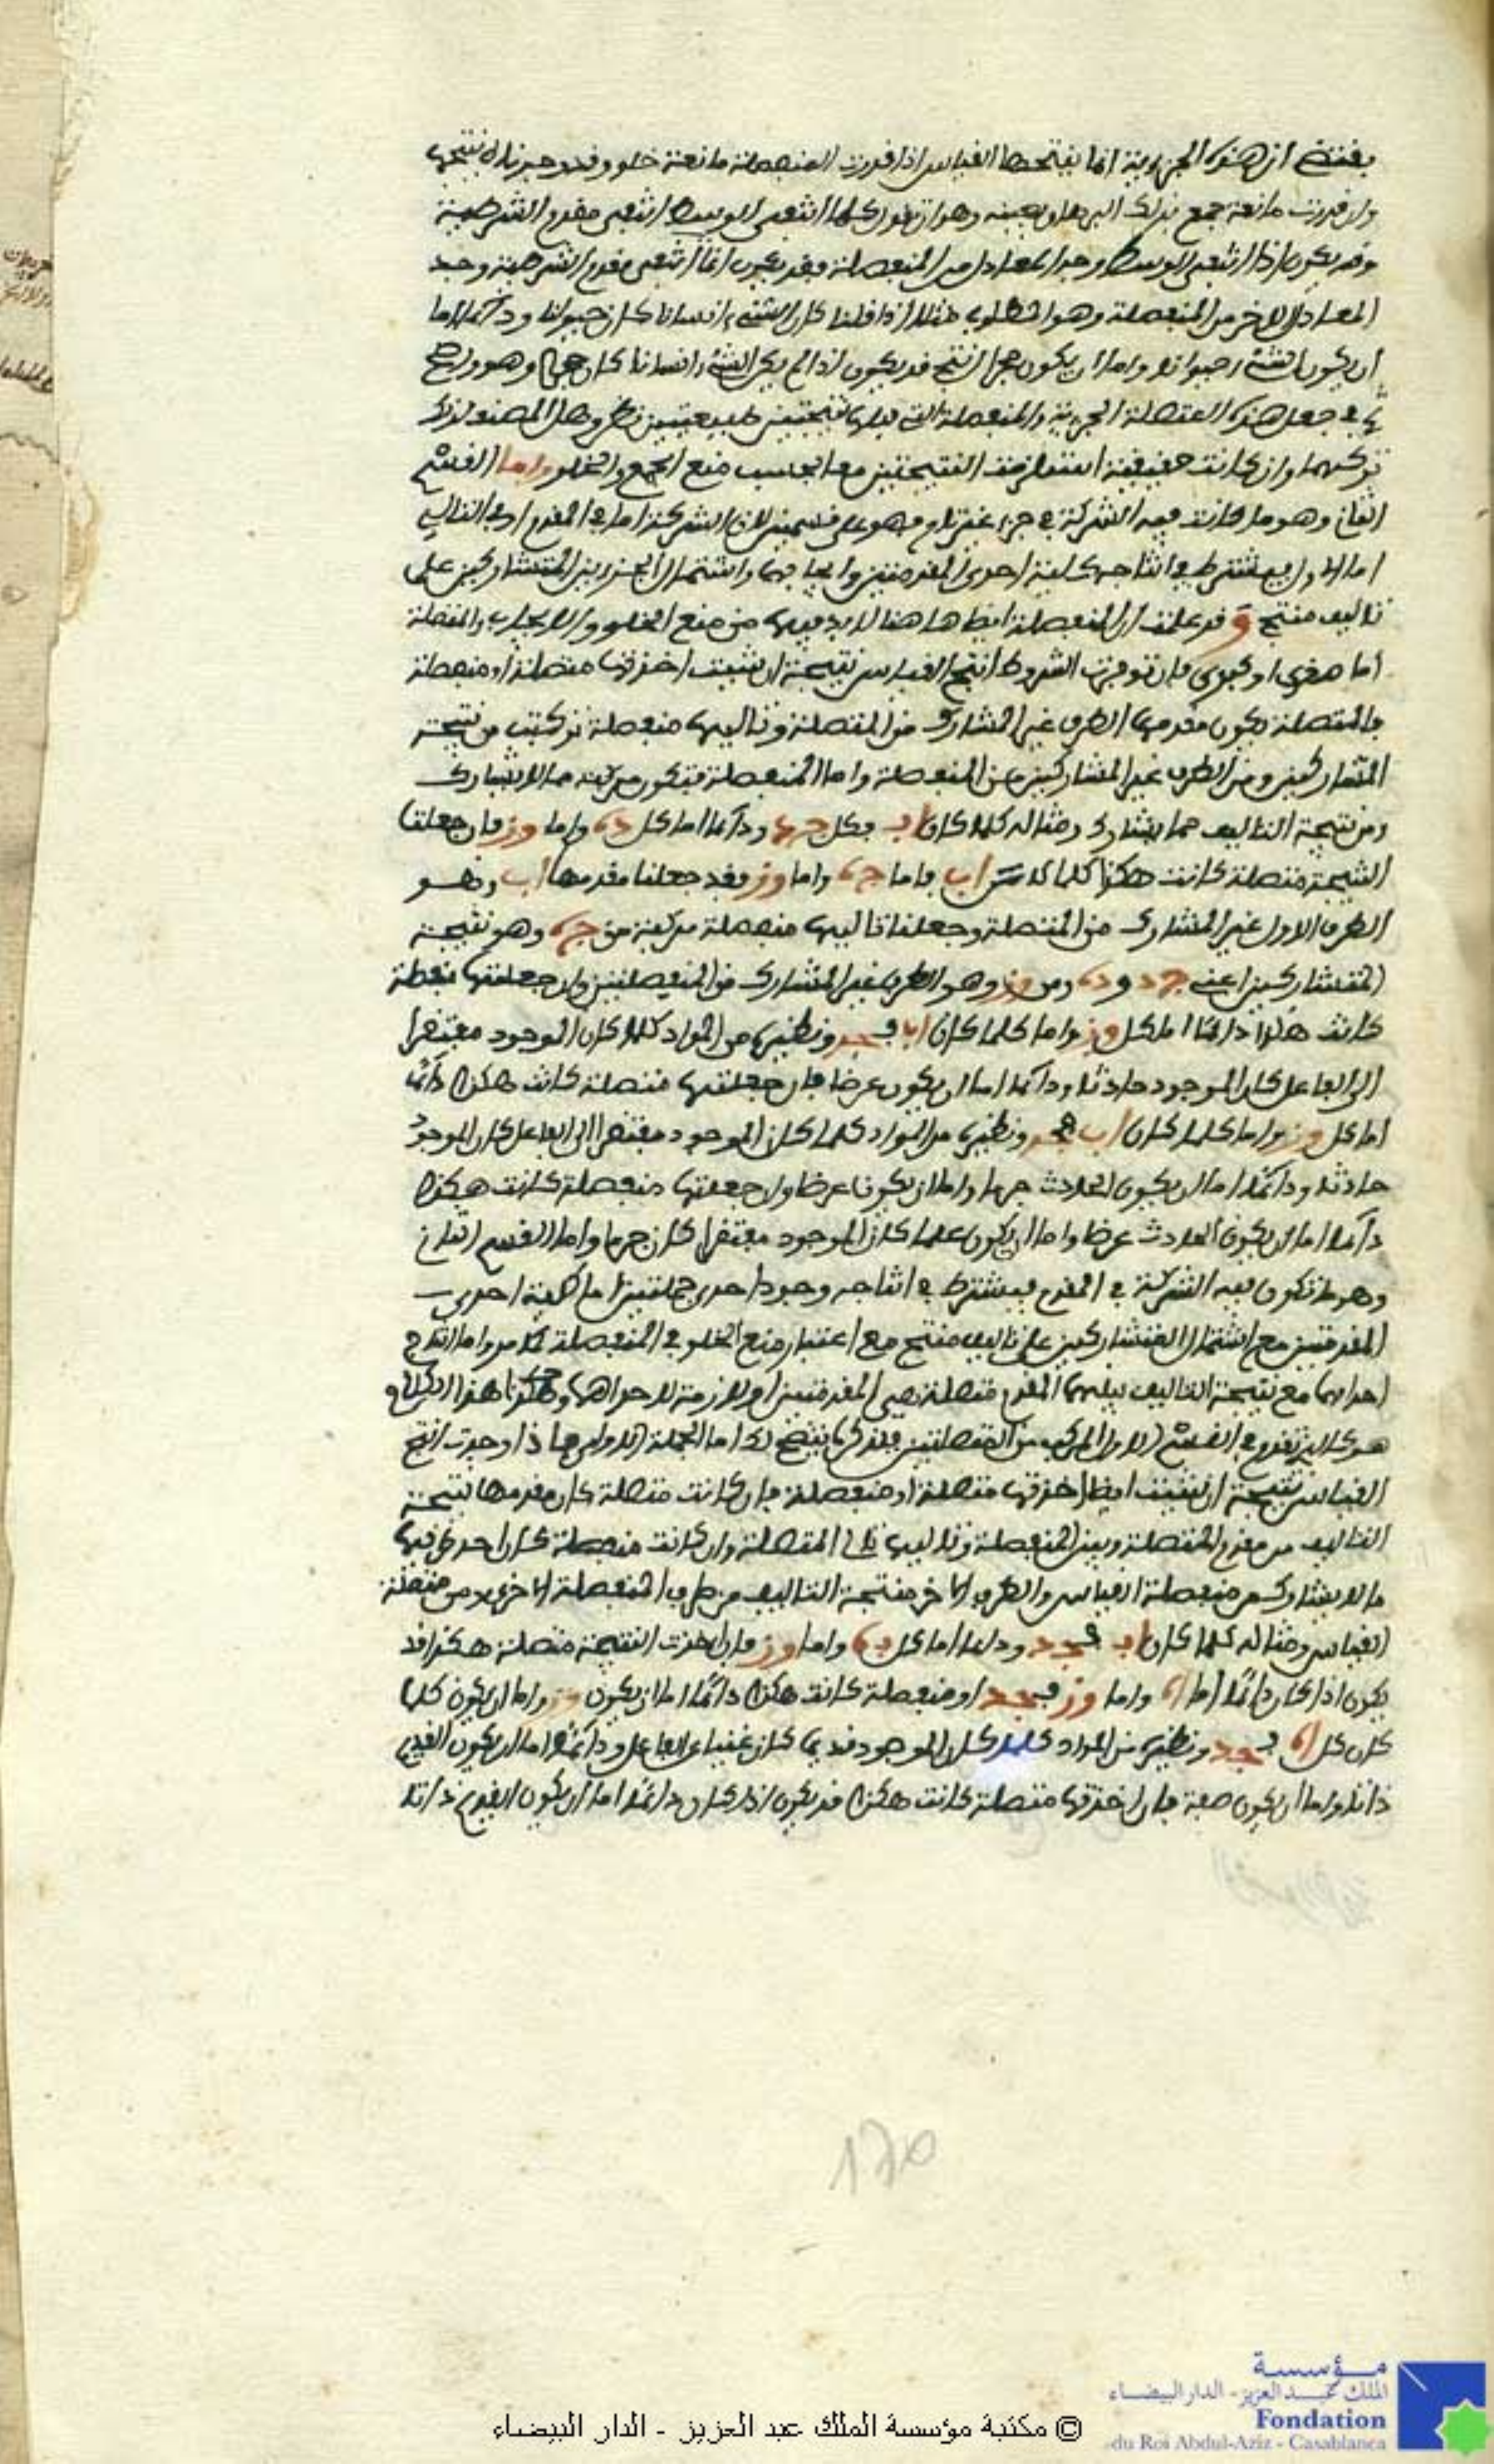 يقتضي ان هذه الجزئية انما ينتجها القياس اذا قدرت المنفصلة مانعة خلو وقد
وان قدرت مانعة جمع فذلك البرهان بعينه وهو ان تقول كلما انتفى الوسط انتفى مقدم الشرطية
وقد يكون اذا انتفى الوسط وجد المعادل من المنفصلة فقد يكون اذا انتفى مقدم الشرطية وجد
المعادل الاخر من المنفصلة وهو المطلوب مثلا اذا قلنا كان الشيء انسانا كان حيوانا ودائما اما
ان يكون الشيء حيوانا واما ان يكون حجرا انتج قد يكون اذا لم يكن الشيء انسانا كان حجرا وهو واضح
في جعل هذه المتصلة الجزئية والمنفصلة التي قبلها نتيجتين طبيعيتين نظر وهل المصنف لذلك
تركهما وان كانت حقيقية استلزمت النتيجتين معا بحسب منع الجمع والخلو واما القسم
الثاني وهو ما كانت فيه الشركة في جزء غير تام فهو على قسمين لان الشركة اما في المقدم او في التالي
اما الاول فيشترط في انتاجه كلية احدى المقدمتين وايجابها واشتمال الجزءين المتشاركين على
تاليف منتج وقد علمت ان المنفصلة ايضا هاهنا لا بد فيها من منع الخلو والايجاب والمتصلة
اما صغرى او كبرى فان توفرت الشروط انتج القياس نتيجة ان شئت اخذتها متصلة او منفصلة
فالمتصلة يكون مقدمها الطرف غير المشارك من المتصلة وتاليها منفصلة تركبت من نتيجة
المتشاركين ومن الطرف غير المشارك من المنفصلة واما المنفصلة فتكون مركبة مما لا يشارك
ومن نتيجة التاليف مما يشارك ومثاله كلما كان اب فكل جد ودائما اما كل ده واما وز فان جعلنا
النتيجة متصلة كانت هكذا كلما كان اب فاما جه واما وز فقد جعلنا مقدمها اب وهو
الطرف الاول غير المشارك من المتصلة وجعلنا تاليها منفصلة مركبة من جه وهو نتيجة
المتشاركين اعني جد وده ومن وز وهو الطرف غير المشارك من المنفصلتين وان جعلتها منفصلة
كانت هكذا دائما اما كل وز واما كلما كان اب فجه ونظيره من المواد كلما كان الموجود مفتقرا
الى الفاعل كان الموجود حادثا ودائما اما ان يكون عرضا فان جعلتها متصلة كانت هكذا دائما
اما كل وز واما كلما كان اب فجه ونظيره من المواد كلما كان الموجود مفتقرا الى الفاعل كان الموجود
حادثا ودائما اما ان يكون الحادث جرما واما ان يكون عرضا وان جعلتها منفصلة كانت هكذا
دائما اما ان يكون الحادث عرضا واما ان يكون كلما كان الموجود مفتقرا كان جرما واما القسم الثاني
وهو ما تكون فيه الشركة في المقدم فيشترط في انتاجه وجود احدى جملتين اما كلية احدى
المقدمتين مع اشتمال المتشاركين على تاليف منتج مع اعتبار منع الخلو في المنفصلة كما مر واما انتاج
احداهما مع نتيجة التاليف بينهما المقدم متصلة هي المقدمتين او لازمة لاحداهما هذا الكلام
هو كالذي تقدم في القسم الاول المركب من المتصلتين فلنذكر ما يتضح لك اما الجملة الاولى فاذا وجدت انتج
القياس نتيجة ان شئت ايضا اخذتها متصلة او منفصلة فان كانت متصلة كان مقدمها نتيجة
التاليف من مقدم المتصلة وبين المنفصلة وتاليها تالي المتصلة وان كانت منفصلة كان احد طرفيها
ما لا يشارك من منفصلة القياس والطرف الاخر منتجة التاليف من طرف المنفصلة الاخرى ومن متصلة
القياس ومثاله كلما كان اب فجد ودائما اما كل به واما وز فان اخذت النتيجة متصلة هكذا قد
يكون اذا كان دائما اما اه واما وز فجد او منفصلة كانت هكذا دائما اما ان يكون وز واما ان يكون كلما
كان كل اه فجد ونظيره من المواد كلما كان الموجود قديما كان غنيا عن الفاعل ودائما اما ان يكون القديم
ذاتا واما ان يكون صفة فان اخذتها متصلة كانت هكذا قد يكون اذا كان دائما اما ان يكون القديم ذاتا
170
مؤسسة
الملك عبد العزيز - الدار البيضاء
Fondation
du Roi Abdul-Aziz - Casablanca
© مكتبة مؤسسة الملك عبد العزيز - الدار البيضاء